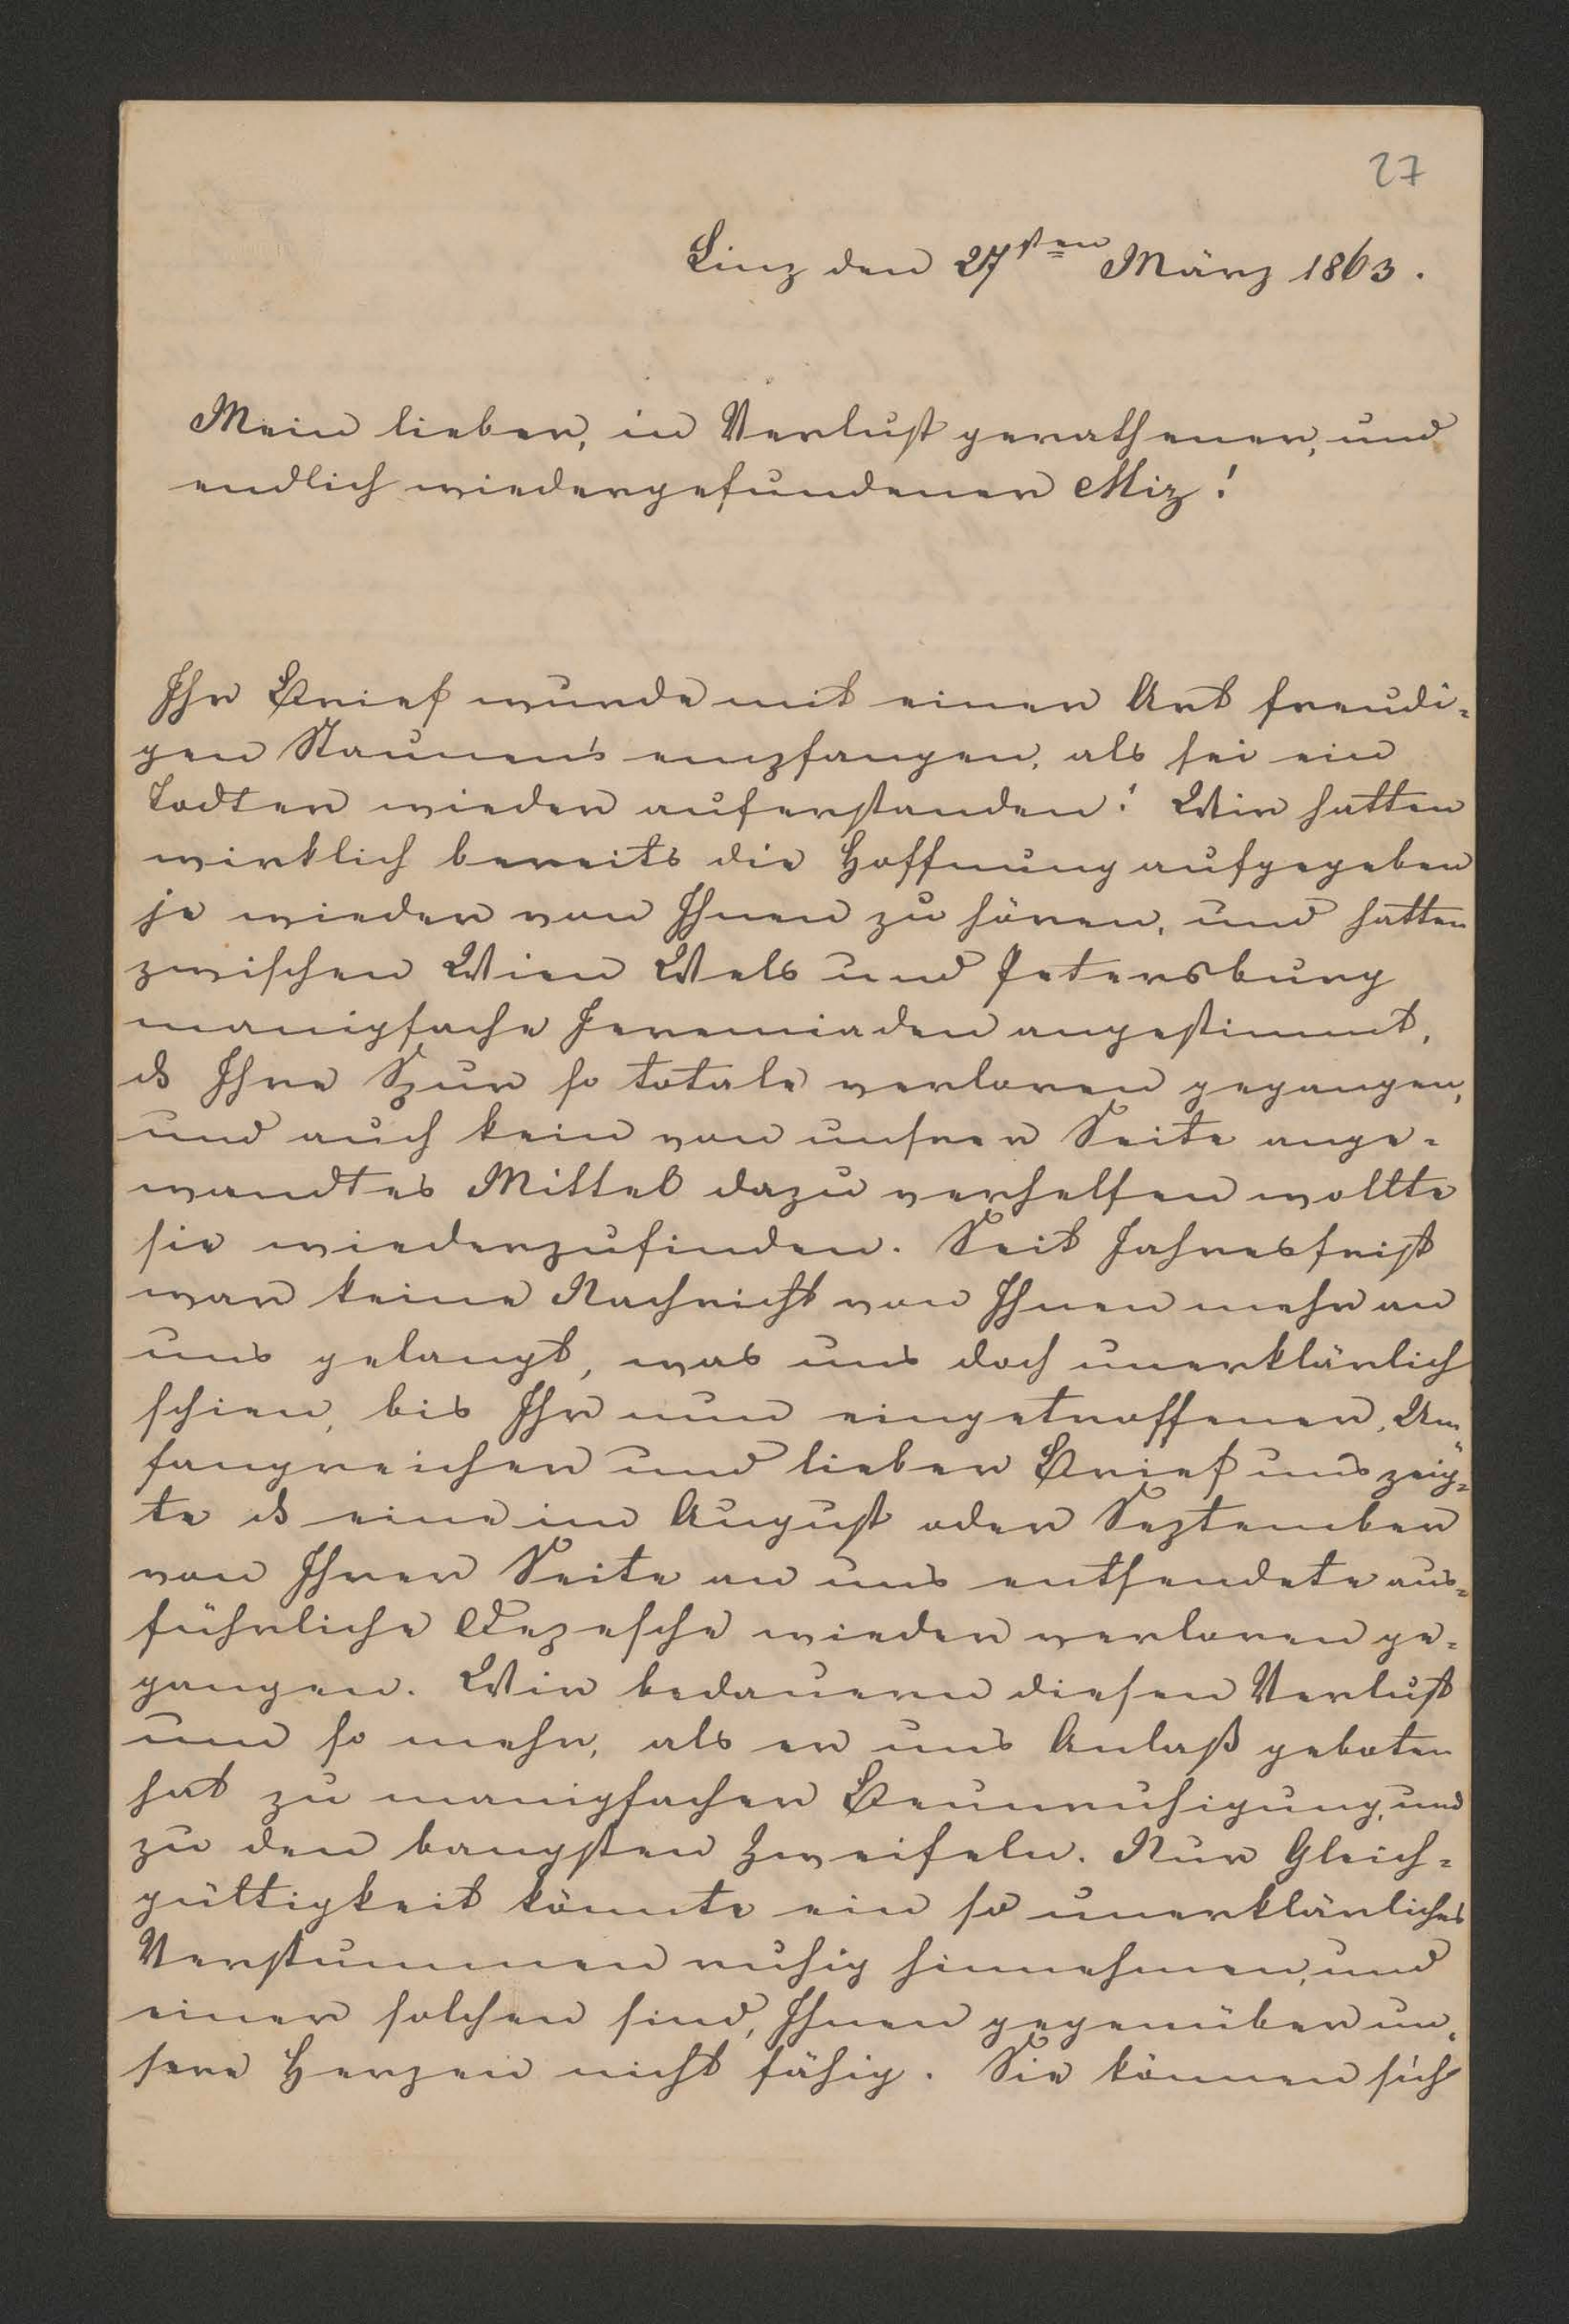 27
Linz den 27sten März 1863.
Mein lieber, in Verlust gerathener, und
endlich wiedergefundener Miz!
Ihr Brief wurde mit einer Art freudi-
gen Staunen's empfangen, als sei ein
Todter wieder auferstanden! Wir hatten
wirklich bereits die Hoffnung aufgegeben
je wieder von Ihnen zu hören, und hatten
zwischen Wien Wels und Petersburg
manigfache Jeremiaden angestimmt,
ds Ihre Spur so totale verloren gegangen,
und auch kein von unsrer Seite ange-
wandtes Mittel dazu verhelfen wollte
sie wiederzufinden. Seit Jahresfrist
war keine Nachricht von Ihnen mehr an
uns gelangt, was uns doch unerklärlich
schien, bis Ihr nun eingetroffener, Um-
fangreicher und lieber Brief uns zeig-
te ds eine im August oder September
von Ihrer Seite an uns entsendete aus-
führliche Depesche wieder verloren ge-
gangen. Wir bedauern diesen Verlust
um so mehr, als er uns Anlaß geboten
hat zu manigfacher Beunruhigung, und
zu den bangsten Zweifeln. Nur Gleich-
gültigkeit könnte ein so unerklärliches
Verstummen ruhig hinnehmen, und
einer solchen sind, Ihnen gegenüber un-
sere Herzen nicht fähig. Sie können sich